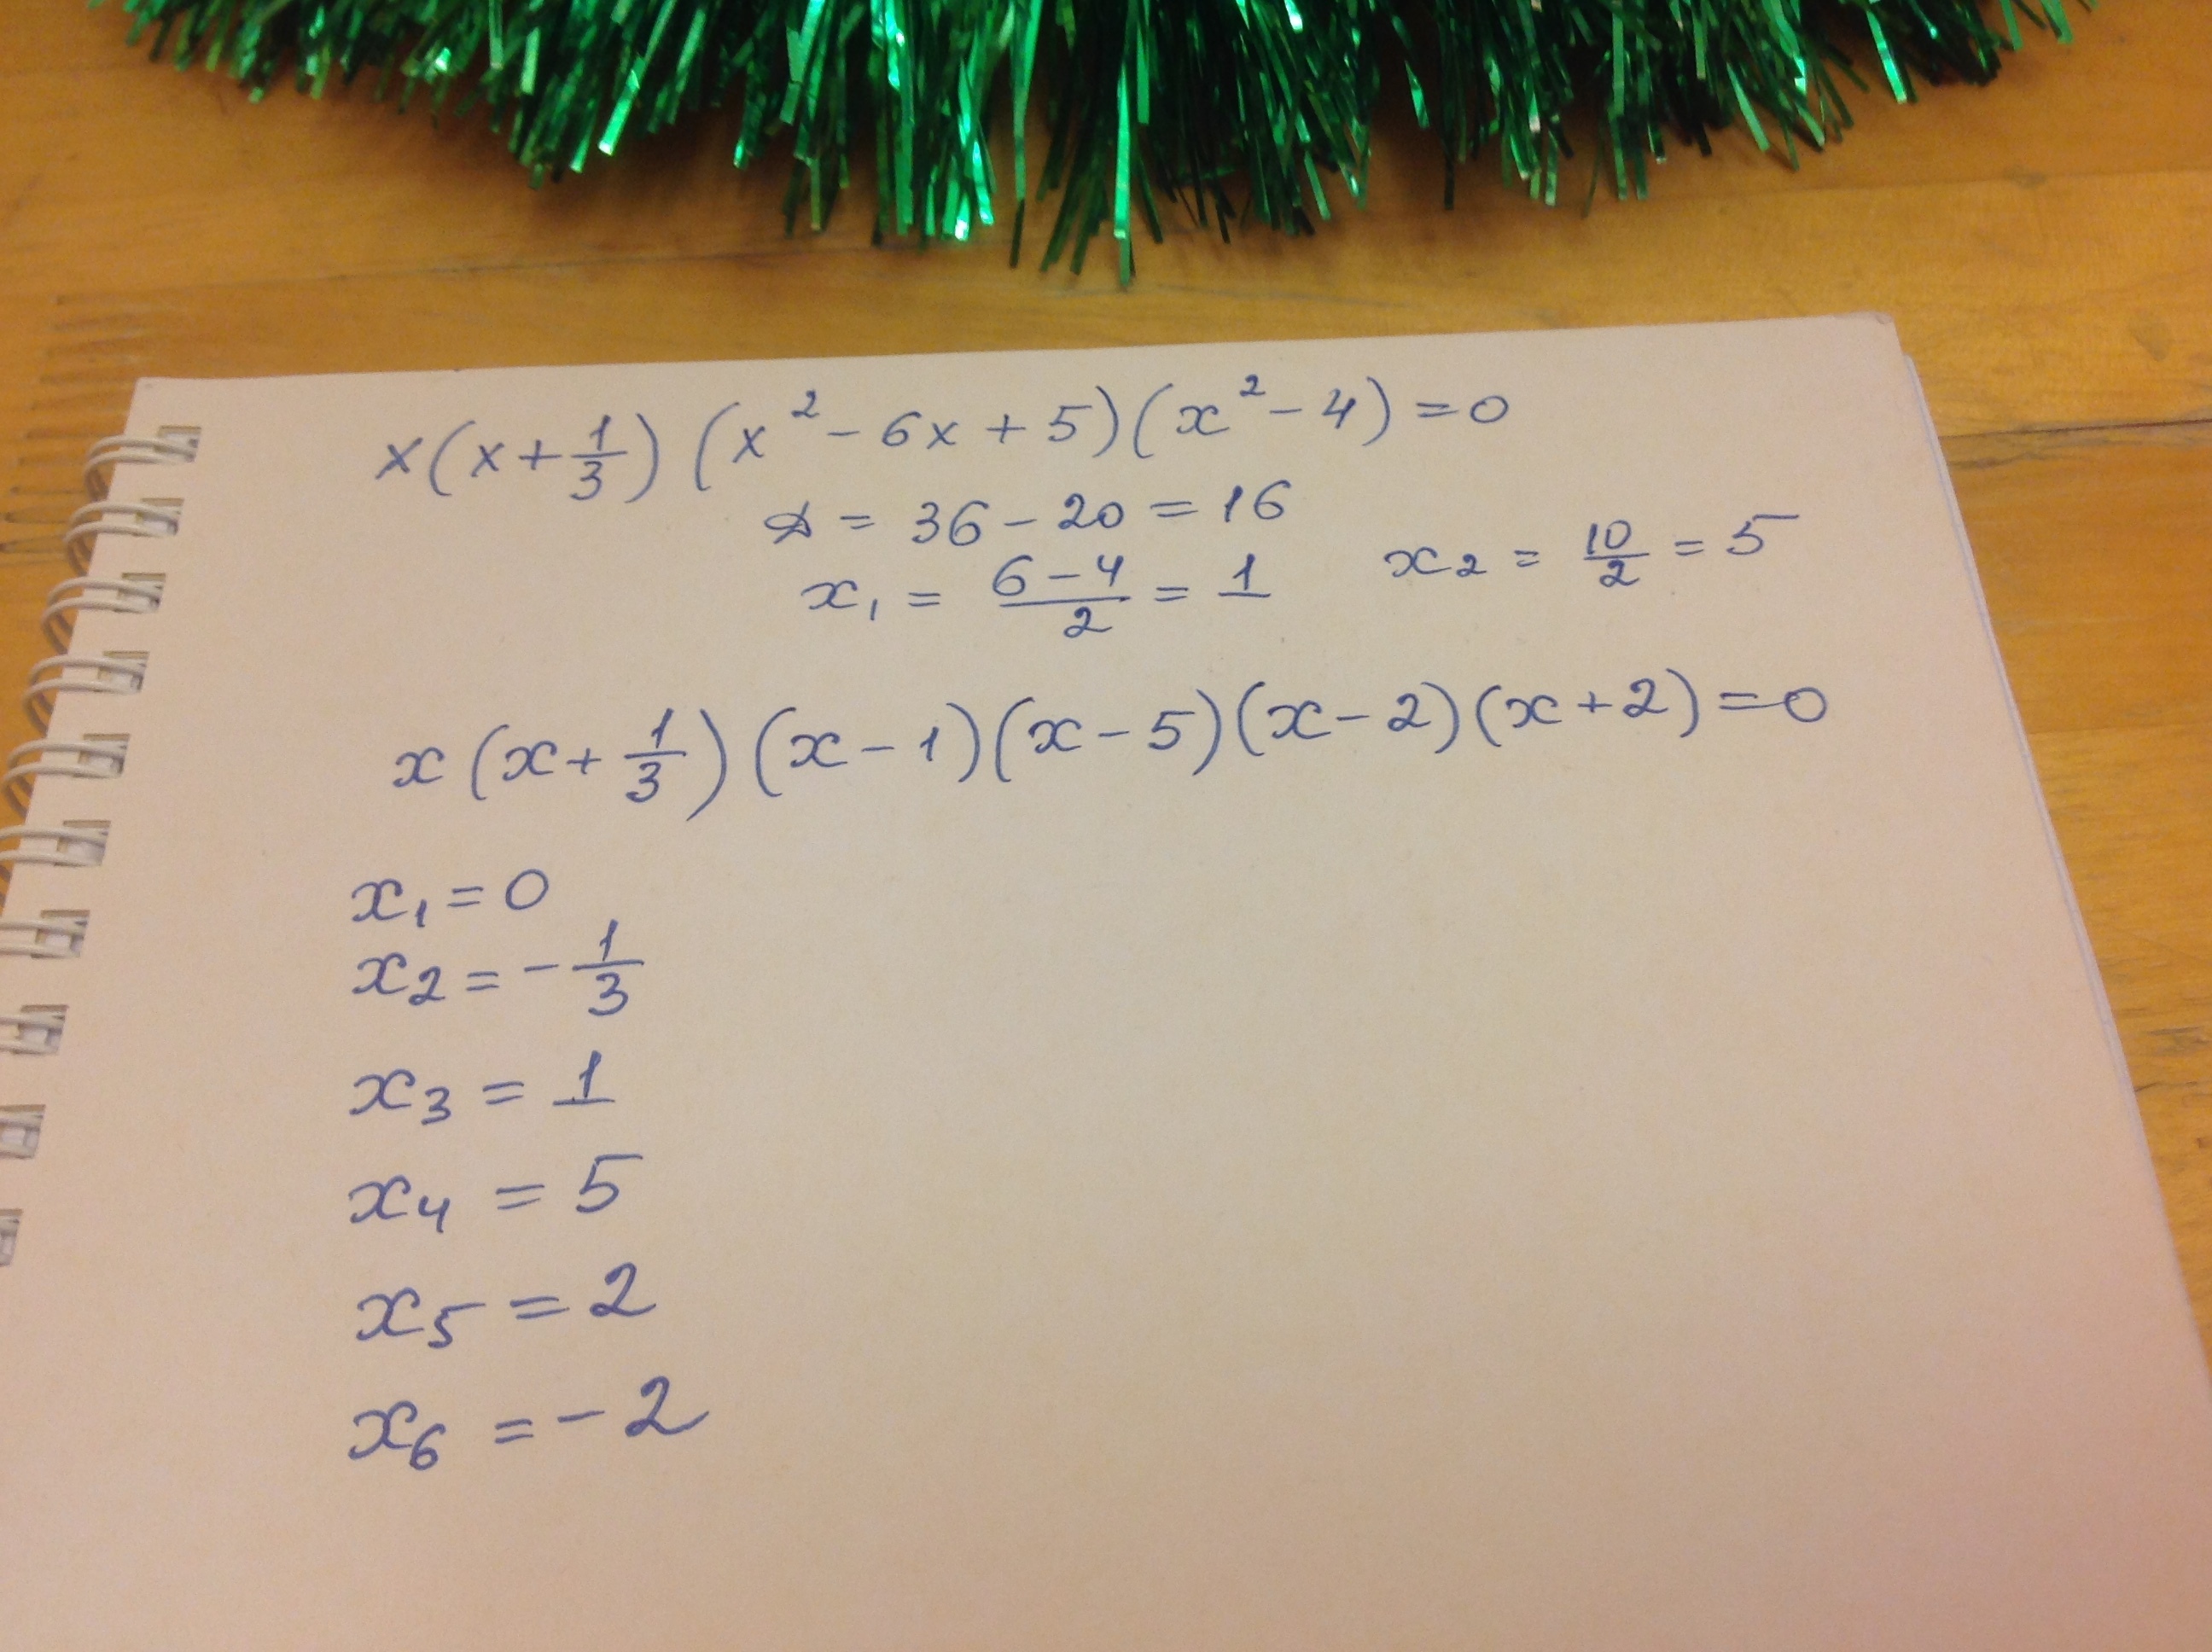 x(x+1/3)(x²-6x+5)(x²-4)=0
D = 36-20 = 16
x₁ = (6-4)/2 = 1    x₂ = 10/2 = 5
x(x+1/3)(x-1)(x-5)(x-2)(x+2)=0
x₁ = 0
x₂ = -1/3
x₃ = 1
x₄ = 5
x₅ = 2
x₆ = -2